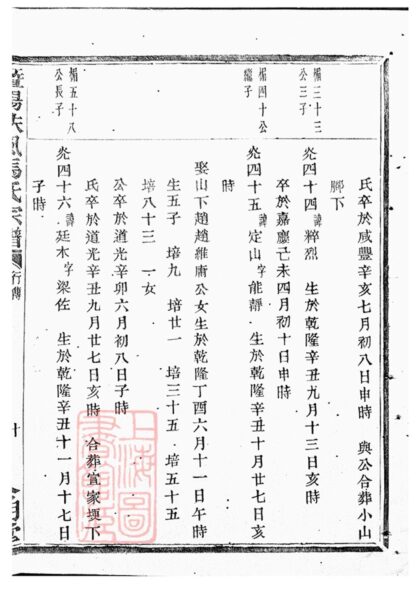 氏卒於咸豐辛亥七月初八日申時 與公合葬小山
脚下
三十三
公三子
炎四十四諱粹烈 生於乾隆辛丑九月十三日亥時
卒於嘉慶己未四月初十日申時
四十公
繼子
炎四十五諱定山字能靜 生於乾隆辛丑十月廿七日亥
時
娶山下趙趙維庸公女生於乾隆丁酉六月十一日午時
生五子 培九 培廿一 培三十五 培五十五
培八十三 一女
公卒於道光辛卯六月初八日子時
氏卒於道光辛丑九月廿七日亥時 合葬宜家埂下
五十八
公長子
炎四十六諱廷木字梁佐 生於乾隆辛丑十一月十七日
子時
暨陽扶風馬氏宗譜
行傳
十
上海圖